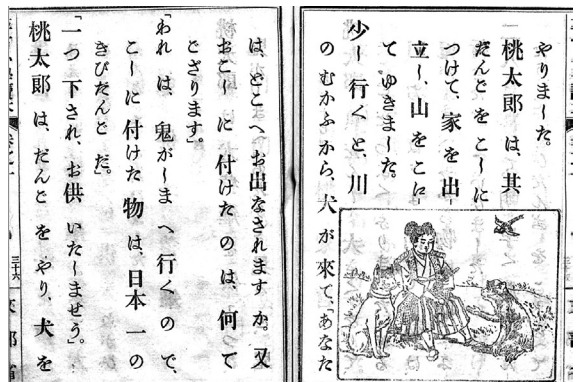 やりました。
桃太郎は、其
だんごをこしに
つけて、家を出
立し、山をこえ
てゆきました。
少し行くと、川
のむかふから、犬が來て、「あなた
は、どこへお出なされますか。又
おこしに付けたのは、何で
ござります。」
「われは、鬼がしまへ行くので、
こしに付けた物は、日本一の
きびだんごだ。」
「一つ下され、お供いたしませう。」
桃太郎は、だんごをやり、犬を
三十六